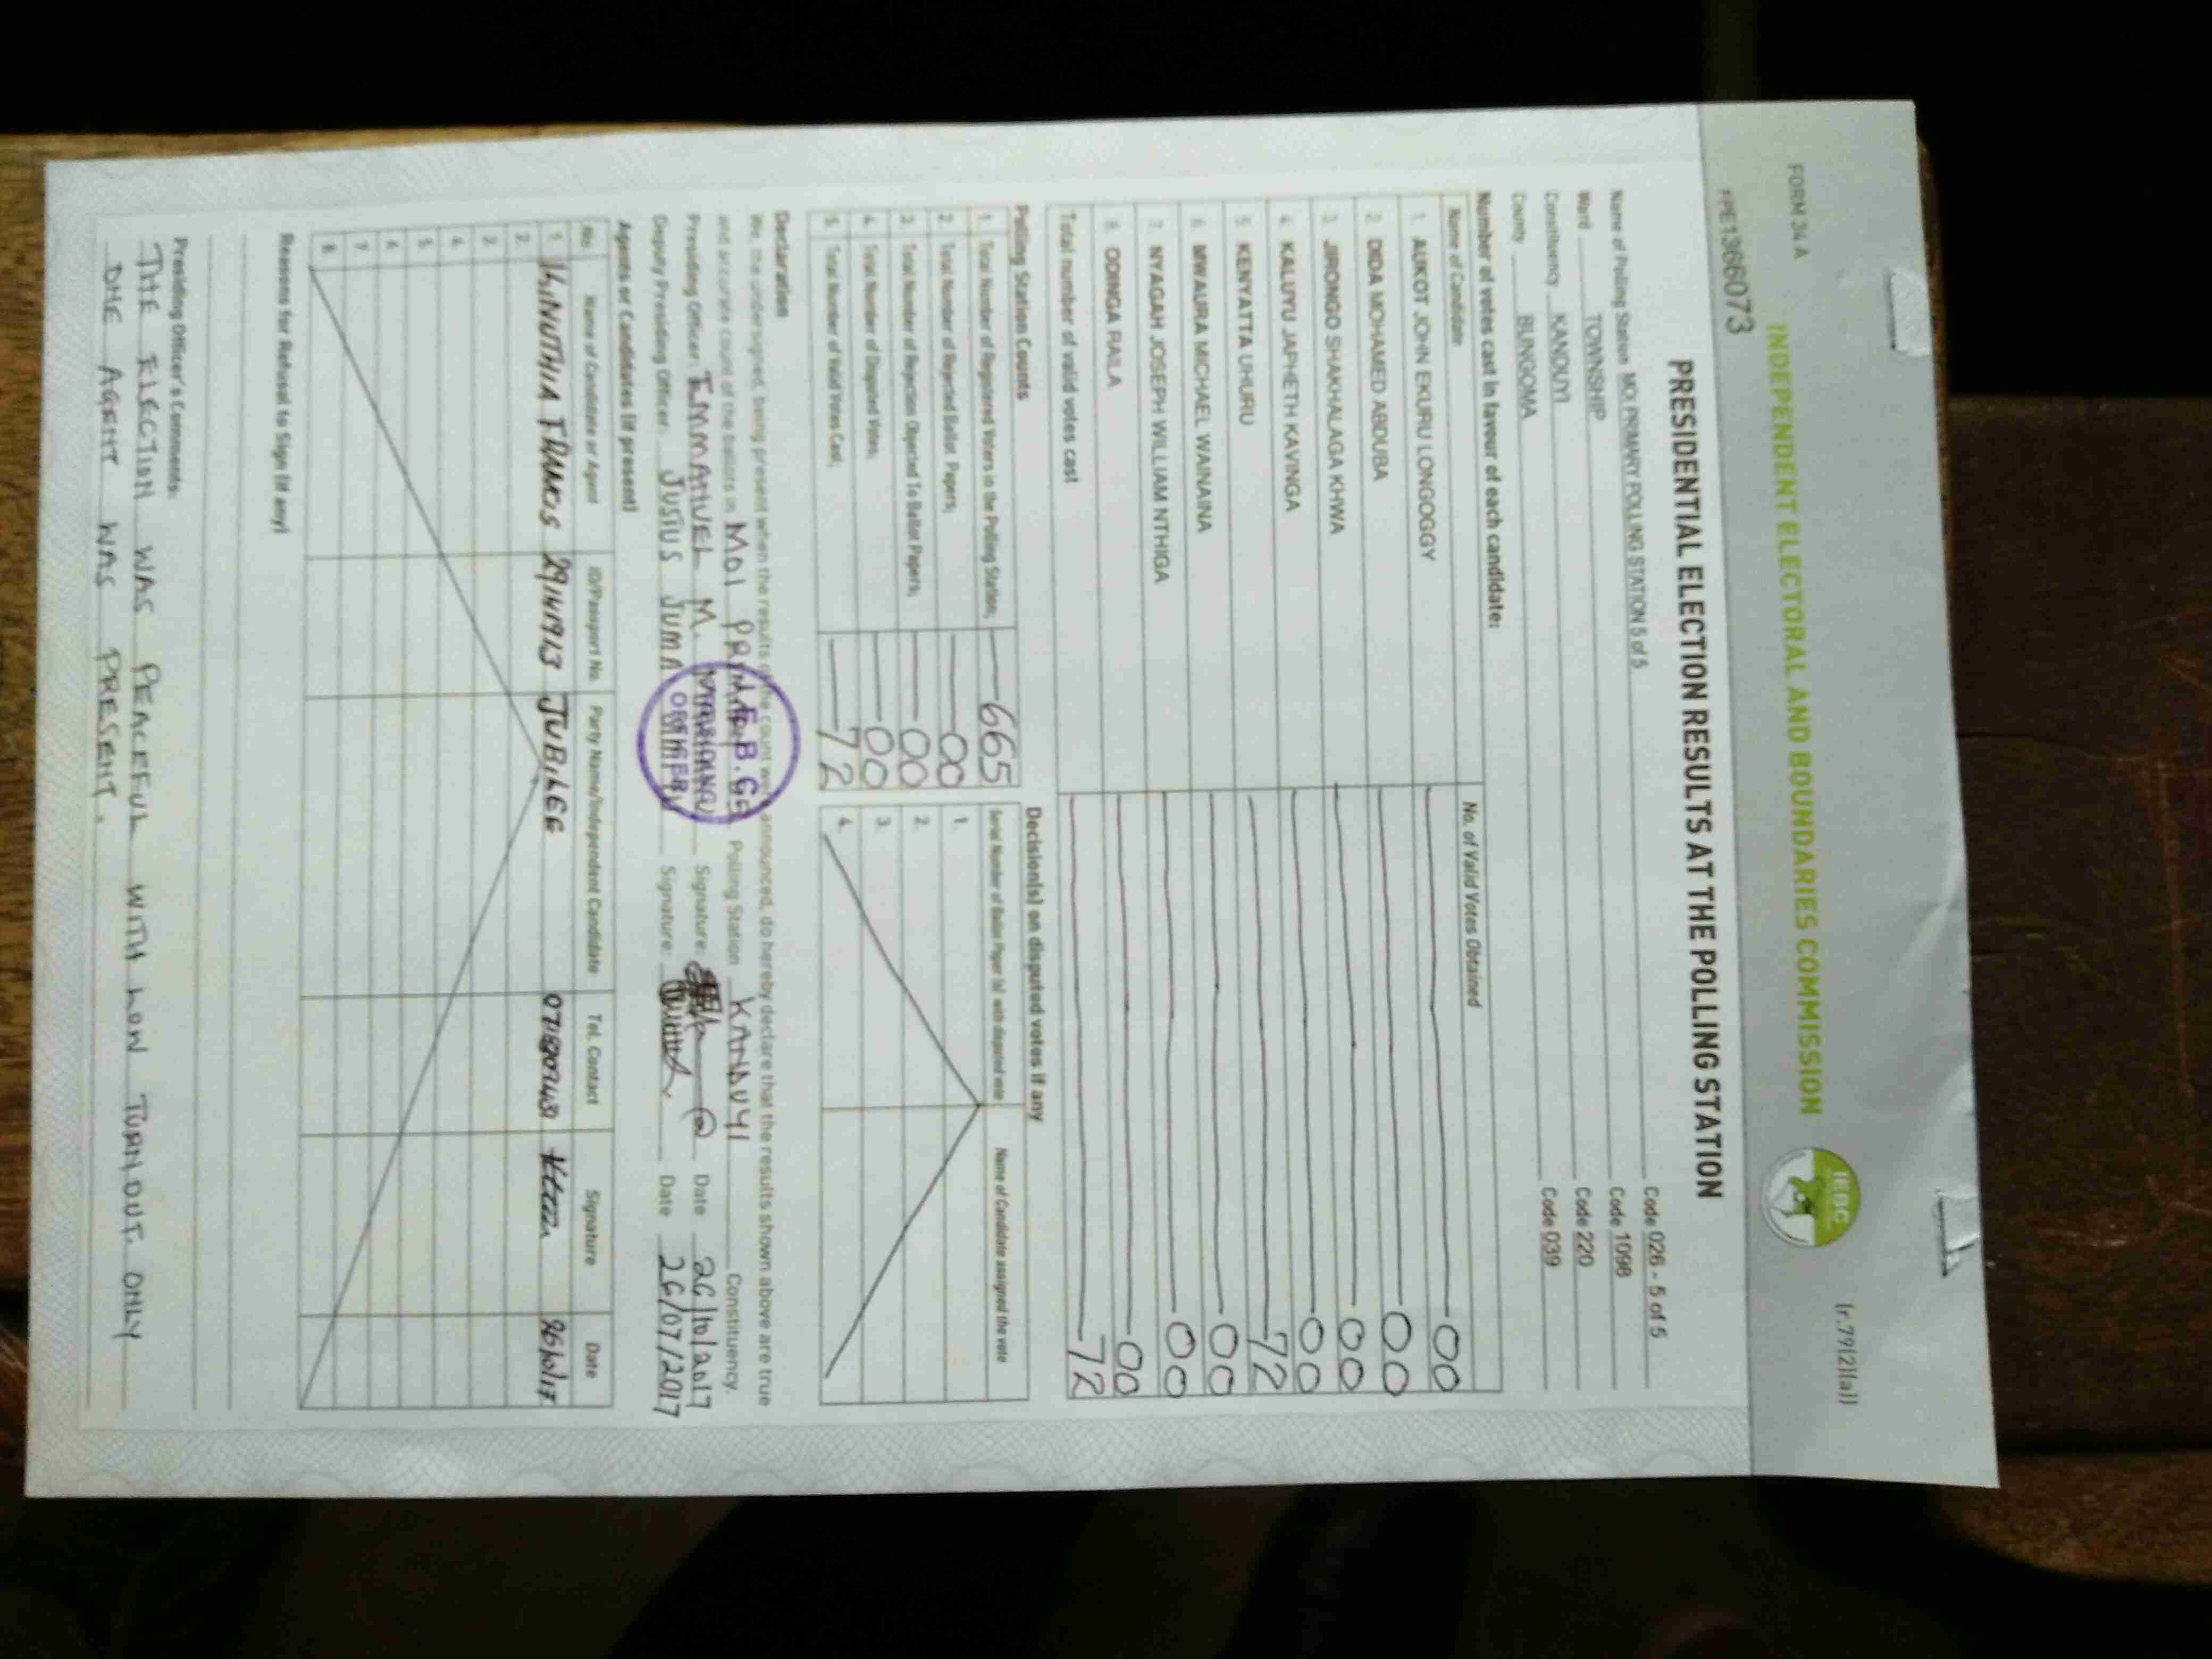 FORM 34 A
(r.79(2)(a))
INDEPENDENT ELECTORAL AND BOUNDARIES COMMISSION
IEBC
FPE1366073
PRESIDENTIAL ELECTION RESULTS AT THE POLLING STATION
Name of Polling Station MOI PRIMARY POLLING STATION 5 of 5 Code 026 - 5 of 5
Ward TOWNSHIP Code 1098
Constituency KANDUYI Code 220
County BUNGOMA Code 039
Number of votes cast in favour of each candidate:
Name of Candidate No. of Valid Votes Obtained
1. AUKOT JOHN EKURU LONGOGGY 00
2. DIDA MOHAMED ABDUBA 00
3. JIRONGO SHAKHALAGA KHWA 00
4. KALUYU JAPHETH KAVINGA 00
5. KENYATTA UHURU 72
6. MWAURA MICHAEL WAINAINA 00
7. NYAGAH JOSEPH WILLIAM NTHIGA 00
8. ODINGA RAILA 00
Total number of valid votes cast 72
Polling Station Counts
1. Total Number of Registered Voters in the Polling Station; 665
2. Total Number of Rejected Ballot Papers; 00
3. Total Number of Rejection Objected To Ballot Papers; 00
4. Total Number of Disputed Votes; 00
5. Total Number of Valid Votes Cast; 72
Decision(s) on disputed votes if any
Serial Number of Ballot Paper (s) with disputed vote Name of Candidate assigned the vote
1.
2.
3.
4.
Declaration
We, the undersigned, being present when the results of the count were announced, do hereby declare that the results shown above are true
and accurate count of the ballots in MOI PRIMARY Polling Station KANDUYI Constituency.
Presiding Officer: EMMANUEL M. Signature: Date 26/10/2017
Deputy Presiding Officer: JUSTUS JUMA Signature: Date 26/07/2017
Agents or Candidates (if present)
No. Name of Candidate or Agent ID/Passport No. Party Name/Independent Candidate Tel. Contact Signature Date
1. KINUTHIA FRANCIS JUBILEE 26/10/17
2.
3.
4.
5.
6.
7.
8.
Reasons for Refusal to Sign (if any)
Presiding Officer's Comments:
THE ELECTION WAS PEACEFUL WITH LOW TURNOUT. ONLY
ONE AGENT WAS PRESENT.